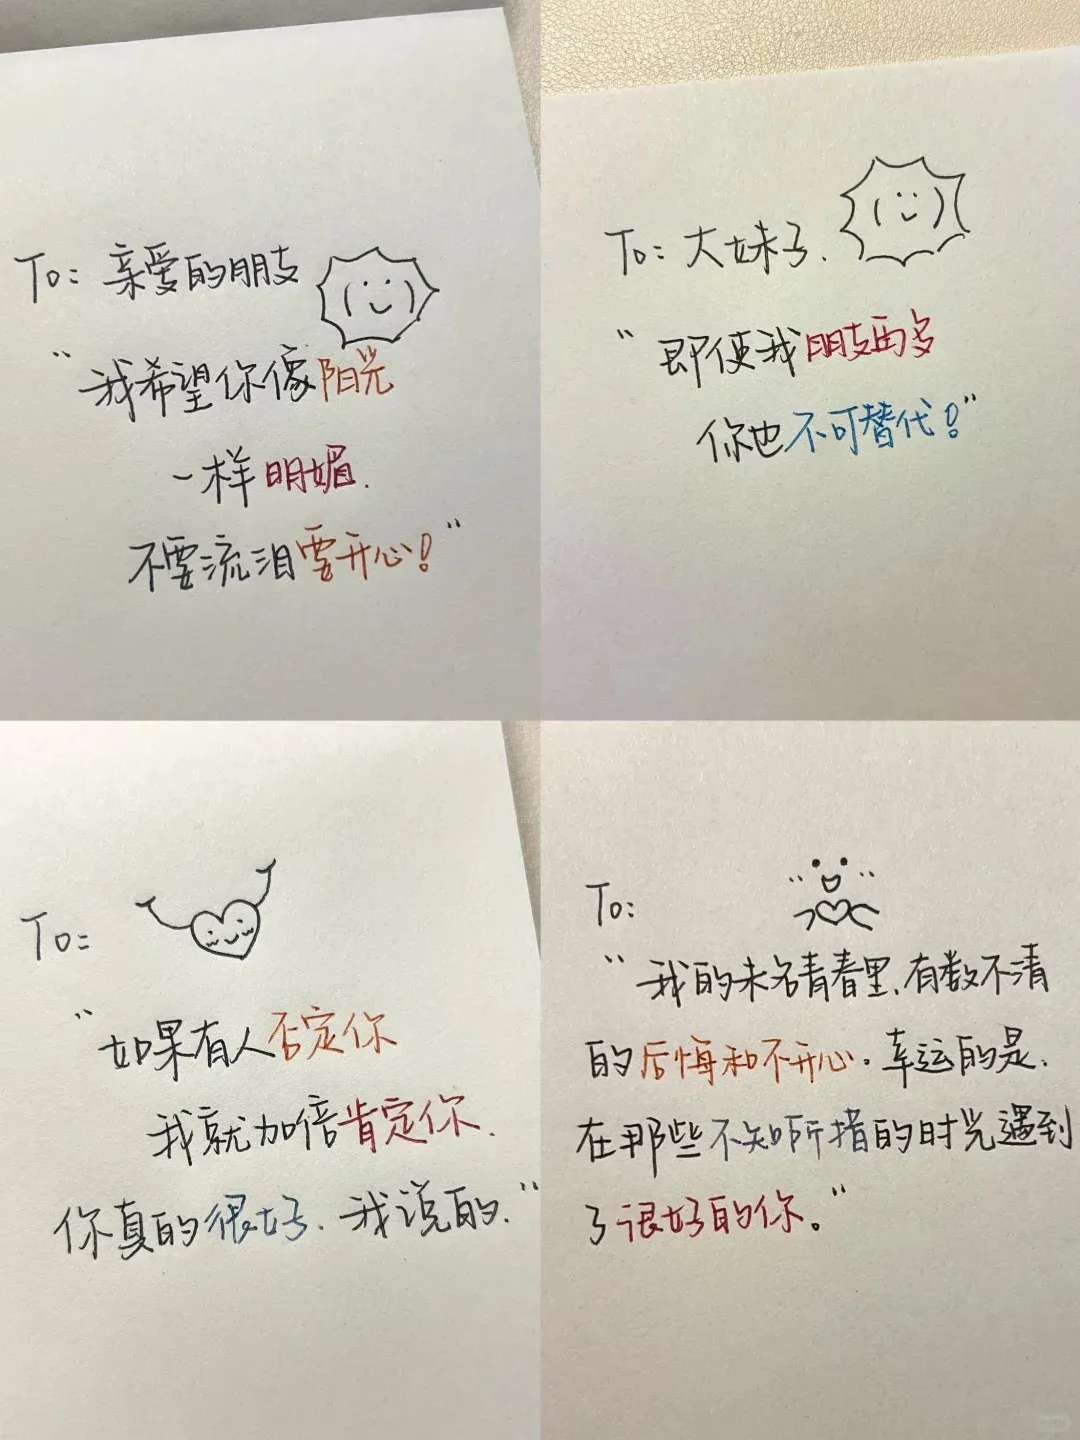 To: 亲爱的朋友
“我希望你像阳光
一样明媚.
不要流泪要开心!”
To: 大妹子.
“即使我朋友再多
你也不可替代!”
To:
“如果有人否定你
我就加倍肯定你.
你真的很好. 我说的.”
To:
“我的未名青春里, 有数不清
的后悔和不开心。幸运的是.
在那些不知所措的时光遇到
了很好的你。”